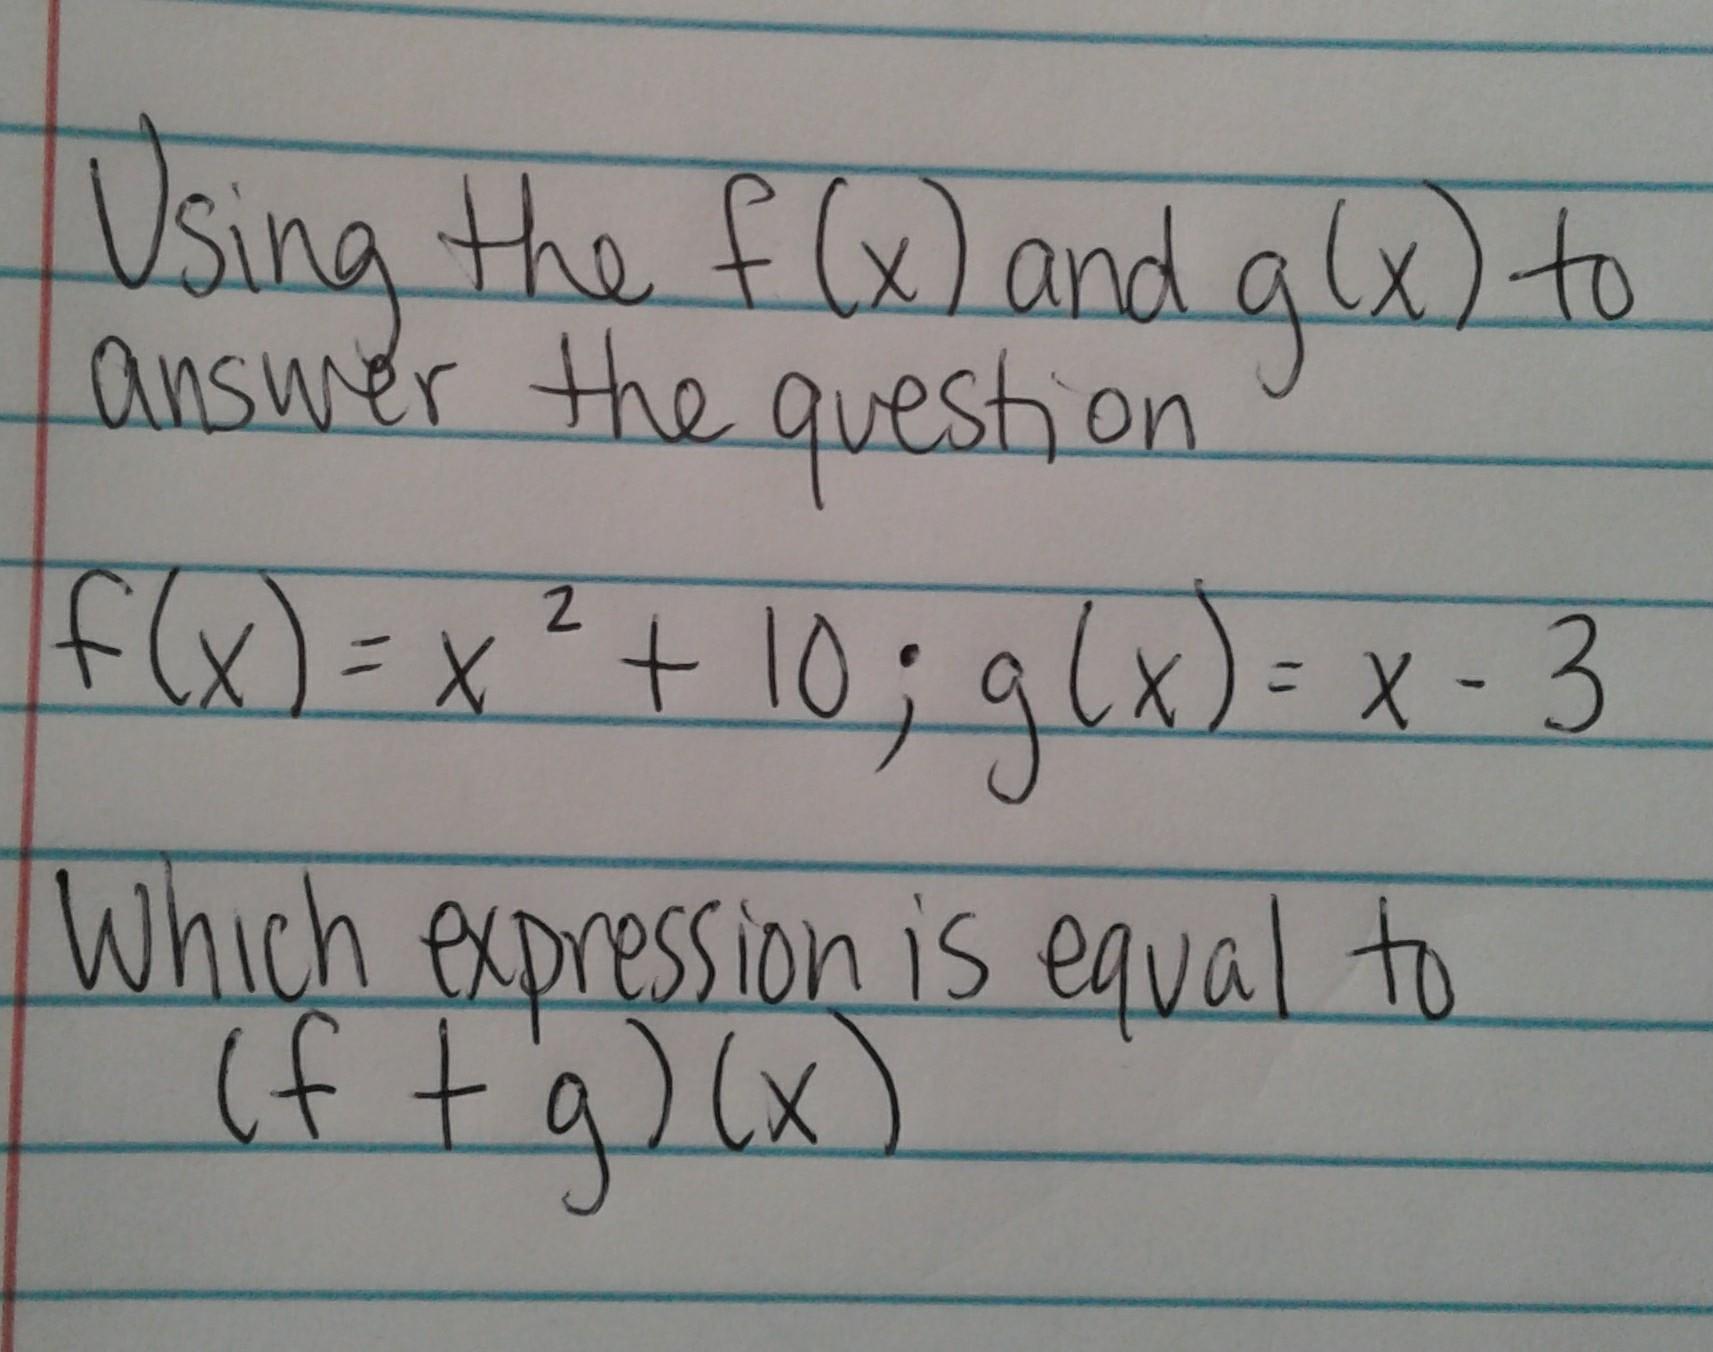 Using the f(x) and g(x) to
answer the question
f(x) = x² + 10; g(x) = x - 3
Which expression is equal to
(f + g)(x)